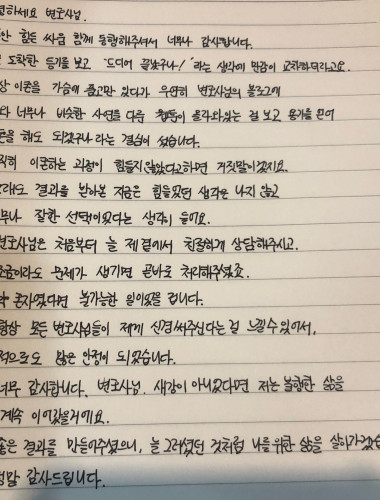 녕하세요 변호사님.
안 힘든 싸움 함께 동행해주셔서 너무나 감사합니다.
도착한 등기를 보고 "드디어 끝났구나!" 라는 생각에 만감이 교차하더라고요.
상 이혼을 가슴에 품고만 있다가 우연히 변호사님의 블로그에
와 너무나 비슷한 사연을 다룬 글들이 올라와있는 걸 보고 용기를 얻어
혼을 해도 되겠구나 라는 결심이 섰습니다.
직히 이혼하는 과정이 힘들지 않았다고하면 거짓말이겠지요.
라도 결과를 받아본 지금은 힘들었던 생각은 나지 않고
무나 잘한 선택이었다는 생각이 들어요.
변호사님은 처음부터 늘 제 곁에서 친절하게 상담해주시고.
조금이라도 문제가 생기면 곧바로 처리해주셨죠.
약 혼자였다면 불가능한 일이었을 겁니다.
항상 모든 변호사님들이 제게 신경써주신다는 걸 느낄 수 있어서,
적으로도 많은 안정이 되었습니다.
너무 감사합니다. 변호사님. 새강이 아니었다면 저는 불행한 삶을
계속 이어갔을거에요.
좋은 결과를 만들어주셨으니, 늘 그러셨던 것처럼 나를 위한 삶을 살아가겠습
정말 감사드립니다.